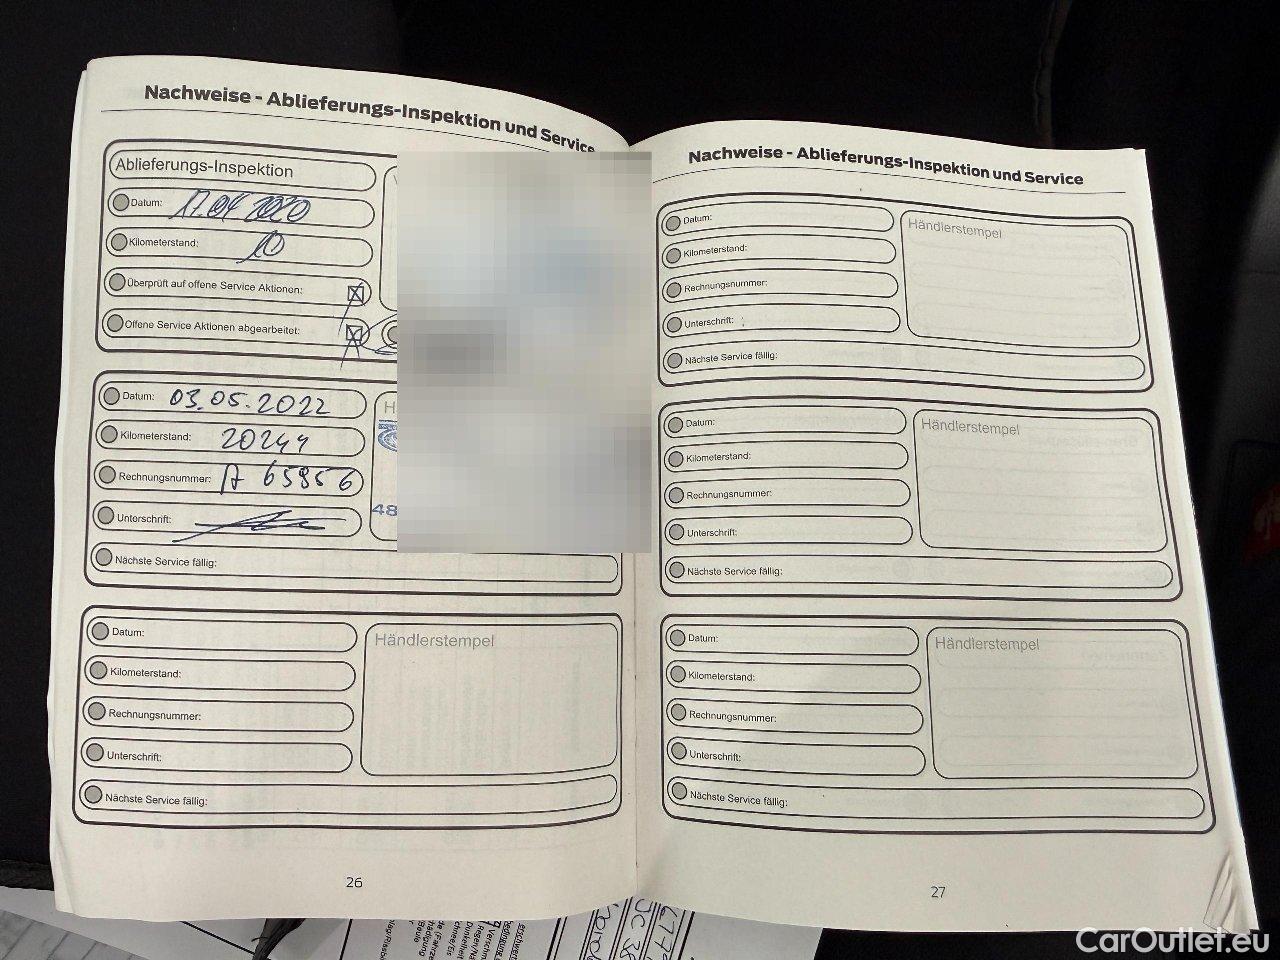 Nachweise - Ablieferungs-Inspektion und Service
Ablieferungs-Inspektion
Datum: 17.04 2020
Kilometerstand: 10
Überprüft auf offene Service Aktionen:
Offene Service Aktionen abgearbeitet:
Datum: 03.05.2022
Kilometerstand: 20244
Rechnungsnummer: A 65956
48
Unterschrift:
Nächste Service fällig:
Datum:
Händlerstempel
Kilometerstand:
Rechnungsnummer:
Unterschrift:
Nächste Service fällig:
26
Nachweise - Ablieferungs-Inspektion und Service
Datum:
Händlerstempel
Kilometerstand:
Rechnungsnummer:
Unterschrift:
Nächste Service fällig:
Datum:
Händlerstempel
Kilometerstand:
Rechnungsnummer:
Unterschrift:
Nächste Service fällig:
Datum:
Händlerstempel
Kilometerstand:
Rechnungsnummer:
Unterschrift:
Nächste Service fällig:
27
CarOutlet.eu